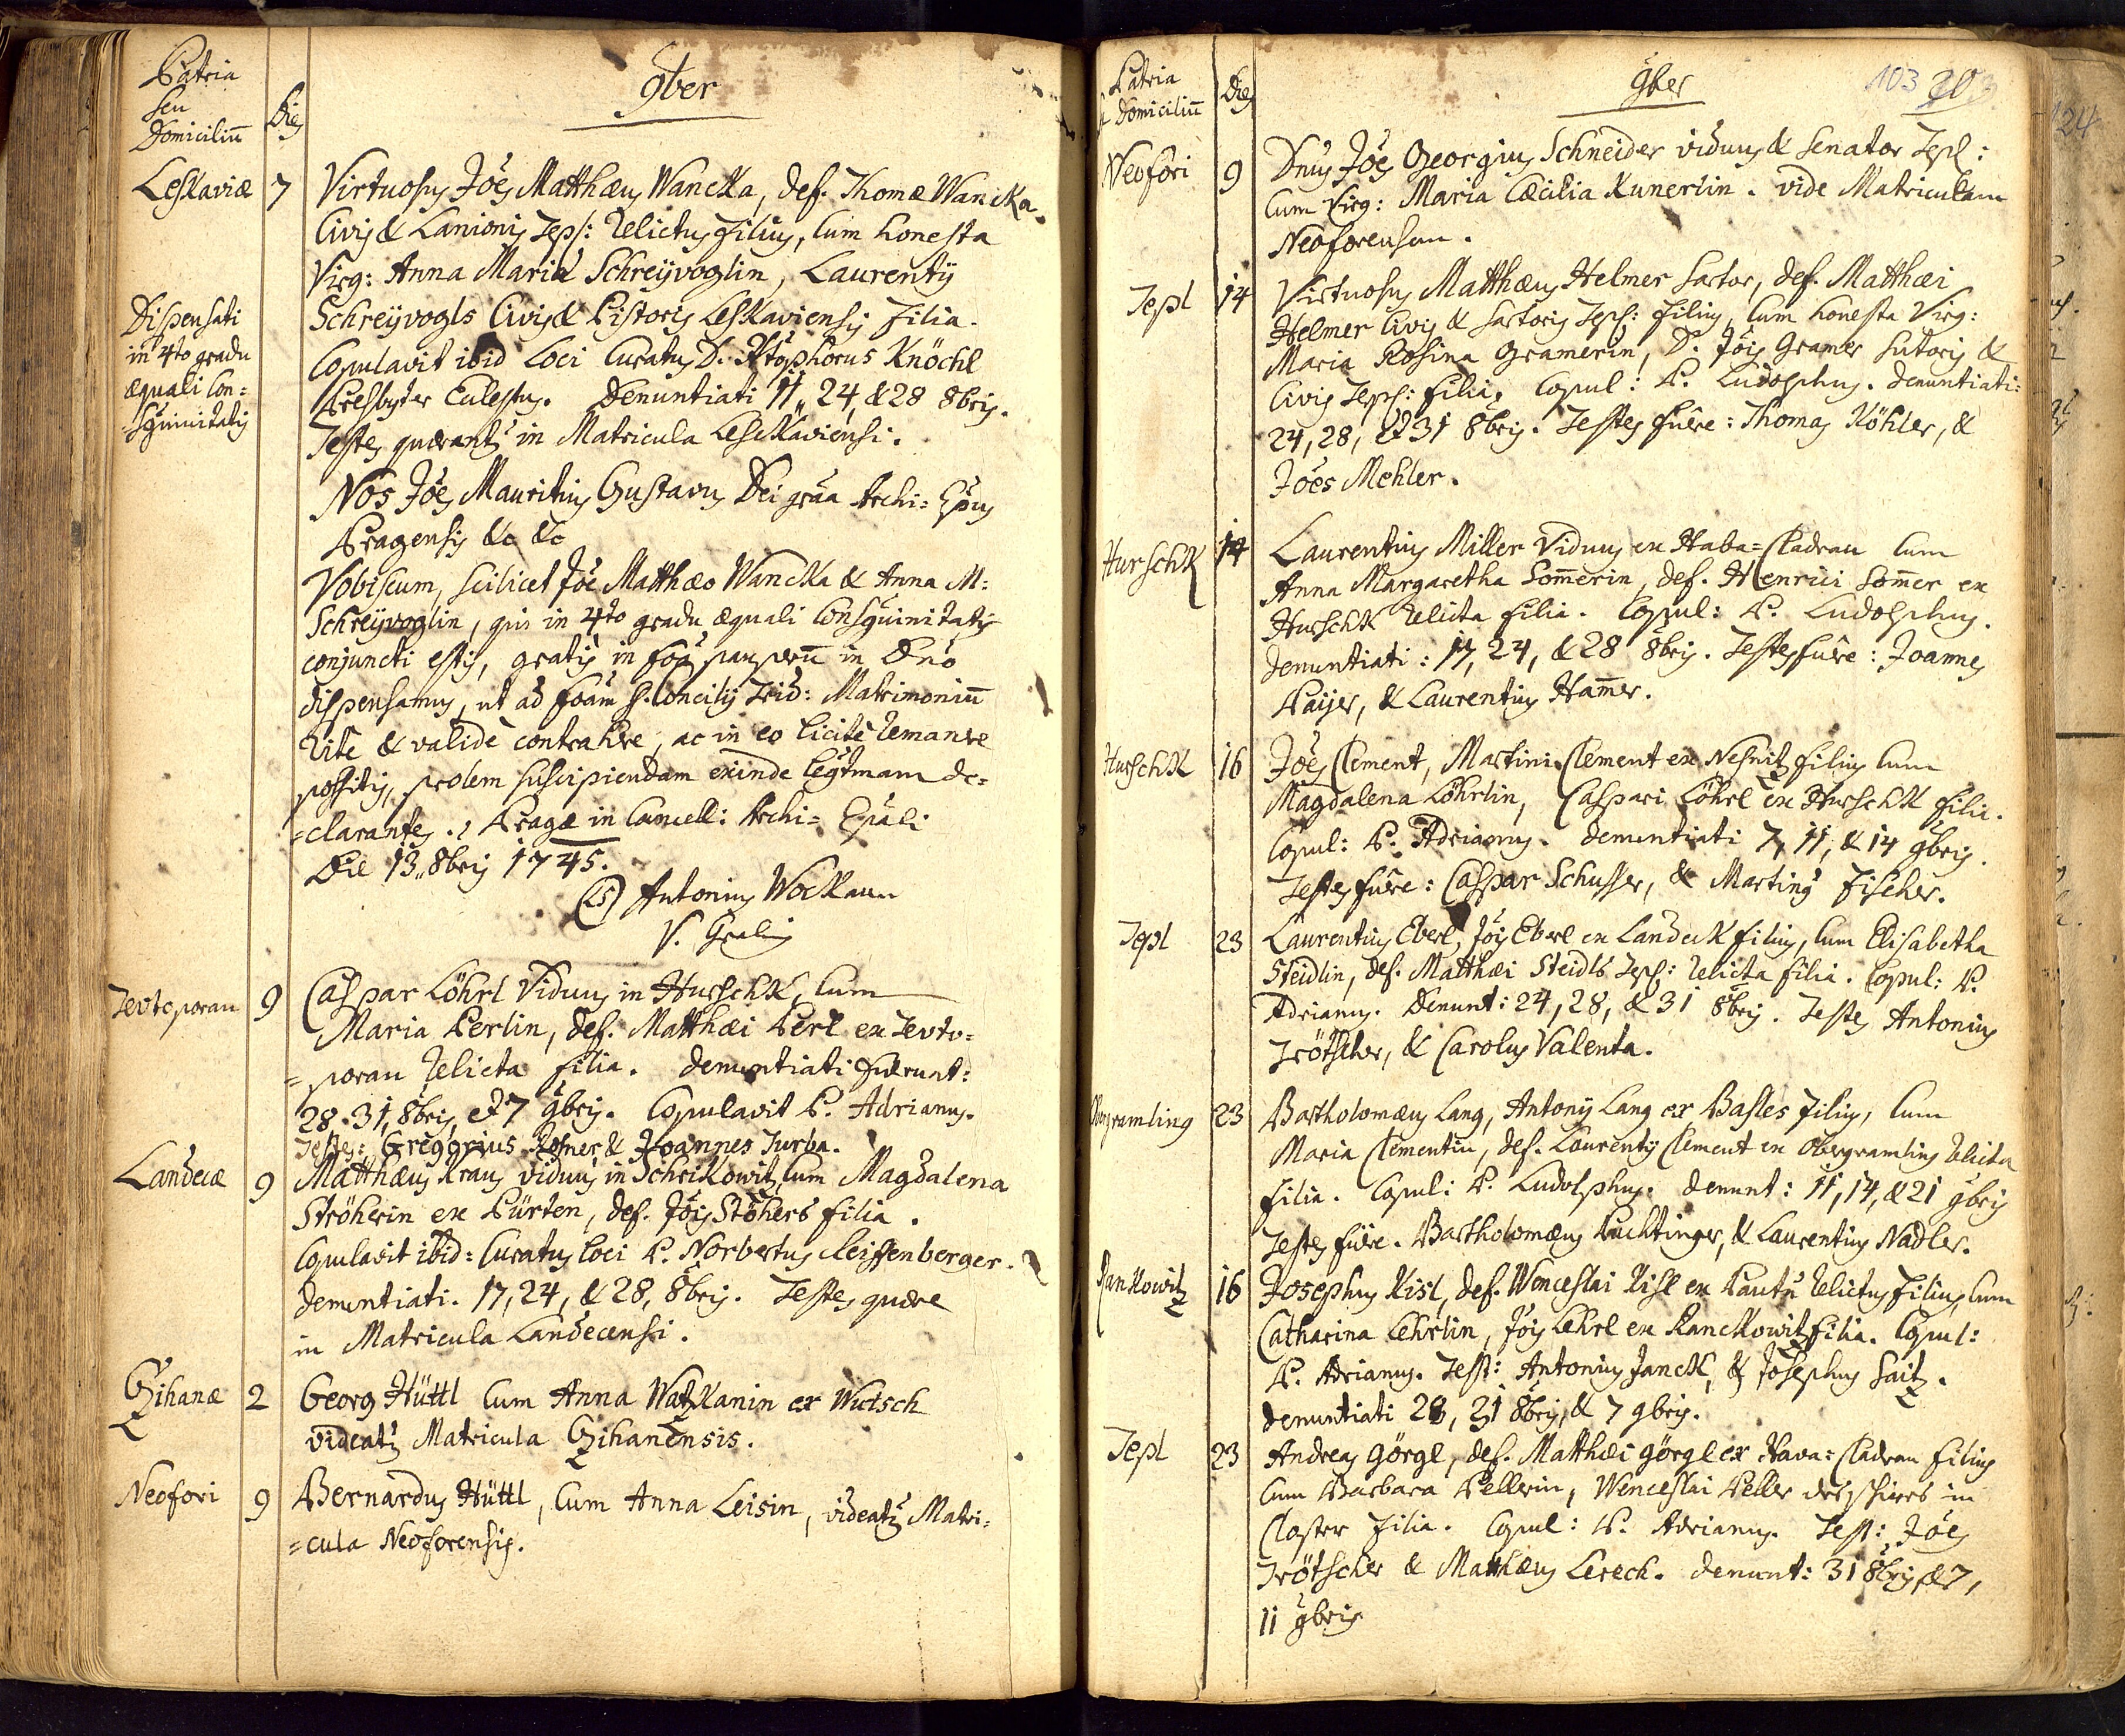 Patria
seu
Domiciliū
Dies
9ber
Leskaviæ 7 Virtuosus Jöes Matthæus Wancka, def. Thomæ Wancka
Civis & Lanionis Tepl: relictus filius, cum honesta
Virg: Anna Maria Schreÿvoglin, Laurentÿ
Schreÿvogls Civis & Pistoris Leskaviensis filia.
Dispensati
in 4to gradu
æquali Con=
sguinitatis
Copulavit ibid loci Curatus D. Xtophorus Knöchl
Presbyter Denuntiati 17, 24, & 28 8bris.
Testes quærantur in Matricula Lesckaviensi.
Nos Jöes Mauritius Gustavus Dei graa Archi= Epus
Pragensis &c &c
Vobiscum, scilicet Jöe Matthæo Wancka & Anna M:
Schreÿvoglin, qui in 4to gradu æquali Consguinitatis
conjuncti estis, gratis in foa pauperū in Dno
dispensamus, ut ad foam S. Concilÿ Trid: Matrimoniū
rite & valide contrahere, ac in eo licite remanere
possitis, prolem suscipiendam exinde legtmam de=
=clarantes. Pragæ in Cancell: Archi= Epali
Die 13. 8bris 1745.
(LS) Antonius Wokaun
V. Gralis
Tevtoporau 9 Caspar Löhrl Viduus in Hurschk, cum
Maria Perlin, def. Matthæi Perl ex Tevto=
=porau relicta filia. Denuntiati fuerunt:
28. 31, 8bris, et 7 9bris. Copulavit P. Adrianus.
Testes: Gregorius Rosner & Joannes Turba.
Landecæ 9 Matthæus Kraus viduus in Schrikowitz, cum Magdalena
Ströherin ex Pürten, def. Jöis Ströhers filia.
Copulavit ibid: Curatus loci P. Norbertus Reissenberger.
Denuntiati. 17, 24, & 28, 8bris. Testes quære
in Matricula Landecensi.
Gihanæ 2 Georg Hüttl cum Anna Watzkanin ex Wutsch
videatur Matricula Gihanensis.
Neofori 9 Bernardus Hüttl, cum Anna Leisin, videatur Matri=
=cula Neoforensis.
Patria
et Domiciliū
Dies
9ber
103
Neofori 9 Dnus Jöes Georgius Schneider viduus & Senator Tepl:
cum Virg: Maria Cæcilia Kunerlin. vide Matriculam
Neoforensem.
Tepl 14 Virtuosus Matthæus Helmer Sartor, def. Matthæi
Helmer Civis & Sartoris Tepl: filius, cum honesta Virg:
Maria Rosina Gramerin, D. Jöis Gramer Sutoris &
Civis Tepl: filia, Copul: P. Ludolphus. Denuntiati:
24, 28, et 31 8bris. Testes fuêre: Thomas Köhler, &
Jöes Mehler.
Hurschk 14 Laurentius Miller Viduus ex Haba=Kladrau cum
Anna Margaretha Som̄erin, def. Henrici Som̄er ex
Hurschk relicta filia. Copul: P. Ludolphus.
Denuntiati: 17, 24, & 28 8bris. Testes fuêre: Joannes
Paÿer, & Laurentius Ham̄er.
Hurschk 16 Jöes Clement, Martini Clement ex Nesnitz filius cum
Magdalena Löhrlin, Caspari Löhrl ex Hurschk filia.
Copul: P. Adrianus. Denuntiati 7, 11, & 14 9bris.
Testes fuêre: Caspar Schusser, & Martinus Fischer.
Tepl 23 Laurentius Eberl, Jöis Eberl ex Landeck filius, cum Elisabetha
Steidlin, def. Matthæi Steidls Tepl: relicta filia. Copul: P.
Adrianus. Denunt: 24, 28, & 31 8bris. Testes Antonius
Trötscher, & Carolus Valenta.
Obergramling 23 Bartholomæus Lang, Antonÿ Lang ex Basles filius, cum
Maria Clementin, def. Laurentÿ Clement ex Obergramling relicta
filia. Copul: P. Ludolphus. Denunt: 11, 14, & 21 9bris
Testes fuêre. Bartholomæus Ruchtinger, & Laurentius Nadler.
Rankowitz 16 Josephus Kisl, def. Wenceslai Kisl ex Pauten relictus filius, cum
Catharina Lehrlin, Jöis Lehrl ex Ranckowitz filia. Copul:
P. Adrianus. Test: Antonius Janck, & Josephus Saitz.
Denuntiati 28, 31 8bris, & 7 9bris.
Tepl 23 Andreas Görgl, def. Matthæi Görgl ex Hava=Kladrau filius
cum Barbara Pellerin, Wenceslai Peller in
Closter filia. Copul: P. Adrianus. Test: Jöes
Trötscher & Matthæus Lerech. Denunt: 31 8bris, & 7,
11 9bris
124